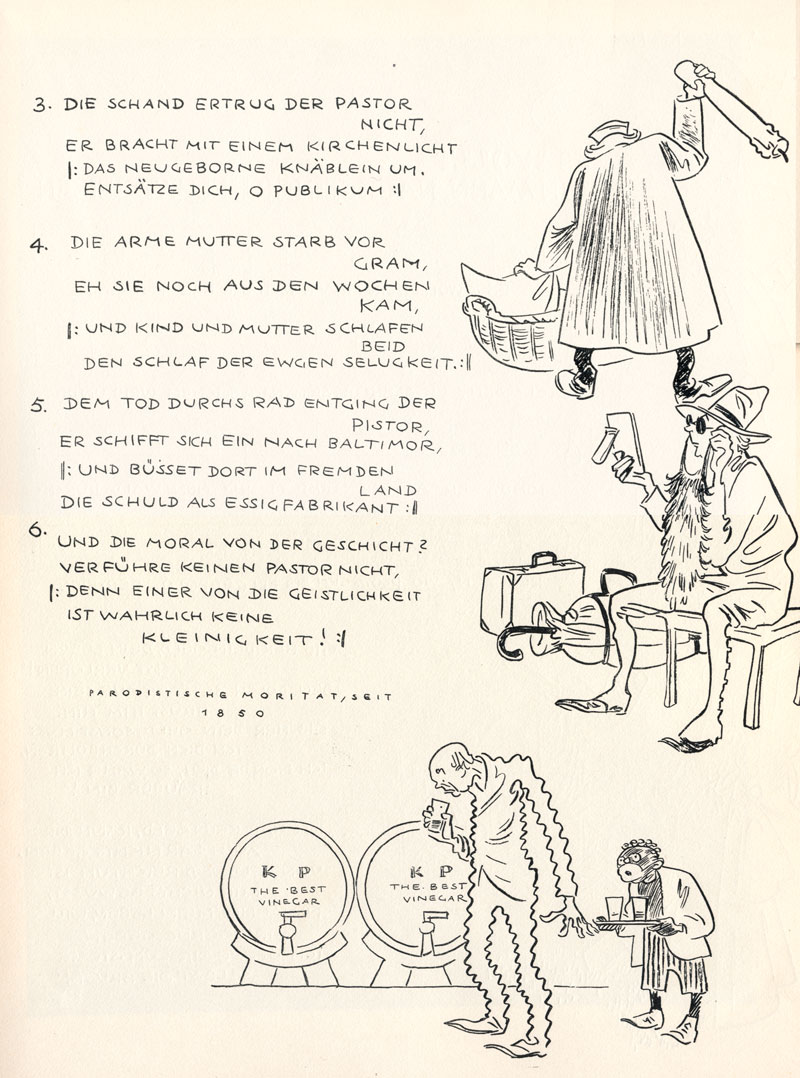 3. DIE SCHAND ERTRUG DER PASTOR
NICHT,
ER BRACHT MIT EINEM KIRCHENLICHT
|: DAS NEUGEBORNE KNÄBLEIN UM.
ENTSÄTZE DICH, O PUBLIKUM :|
4. DIE ARME MUTTER STARB VOR
GRAM,
EH SIE NOCH AUS DEN WOCHEN
KAM,
|: UND KIND UND MUTTER SCHLAFEN
BEID
DEN SCHLAF DER EWGEN SELUGKEIT. :|
5. DEM TOD DURCHS RAD ENTGING DER
PISTOR,
ER SCHIFFT SICH EIN NACH BALTIMOR,
|: UND BÜSSET DORT IM FREMDEN
LAND
DIE SCHULD ALS ESSIGFABRIKANT :|
6. UND DIE MORAL VON DER GESCHICHT?
VERFÜHRE KEINEN PASTOR NICHT,
|: DENN EINER VON DIE GEISTLICHKEIT
IST WAHRLICH KEINE
KLEINIGKEIT! :|
PARODISTISCHE MORITAT, SEIT
1850
K P
THE BEST
VINEGAR
K P
THE BEST
VINEGAR